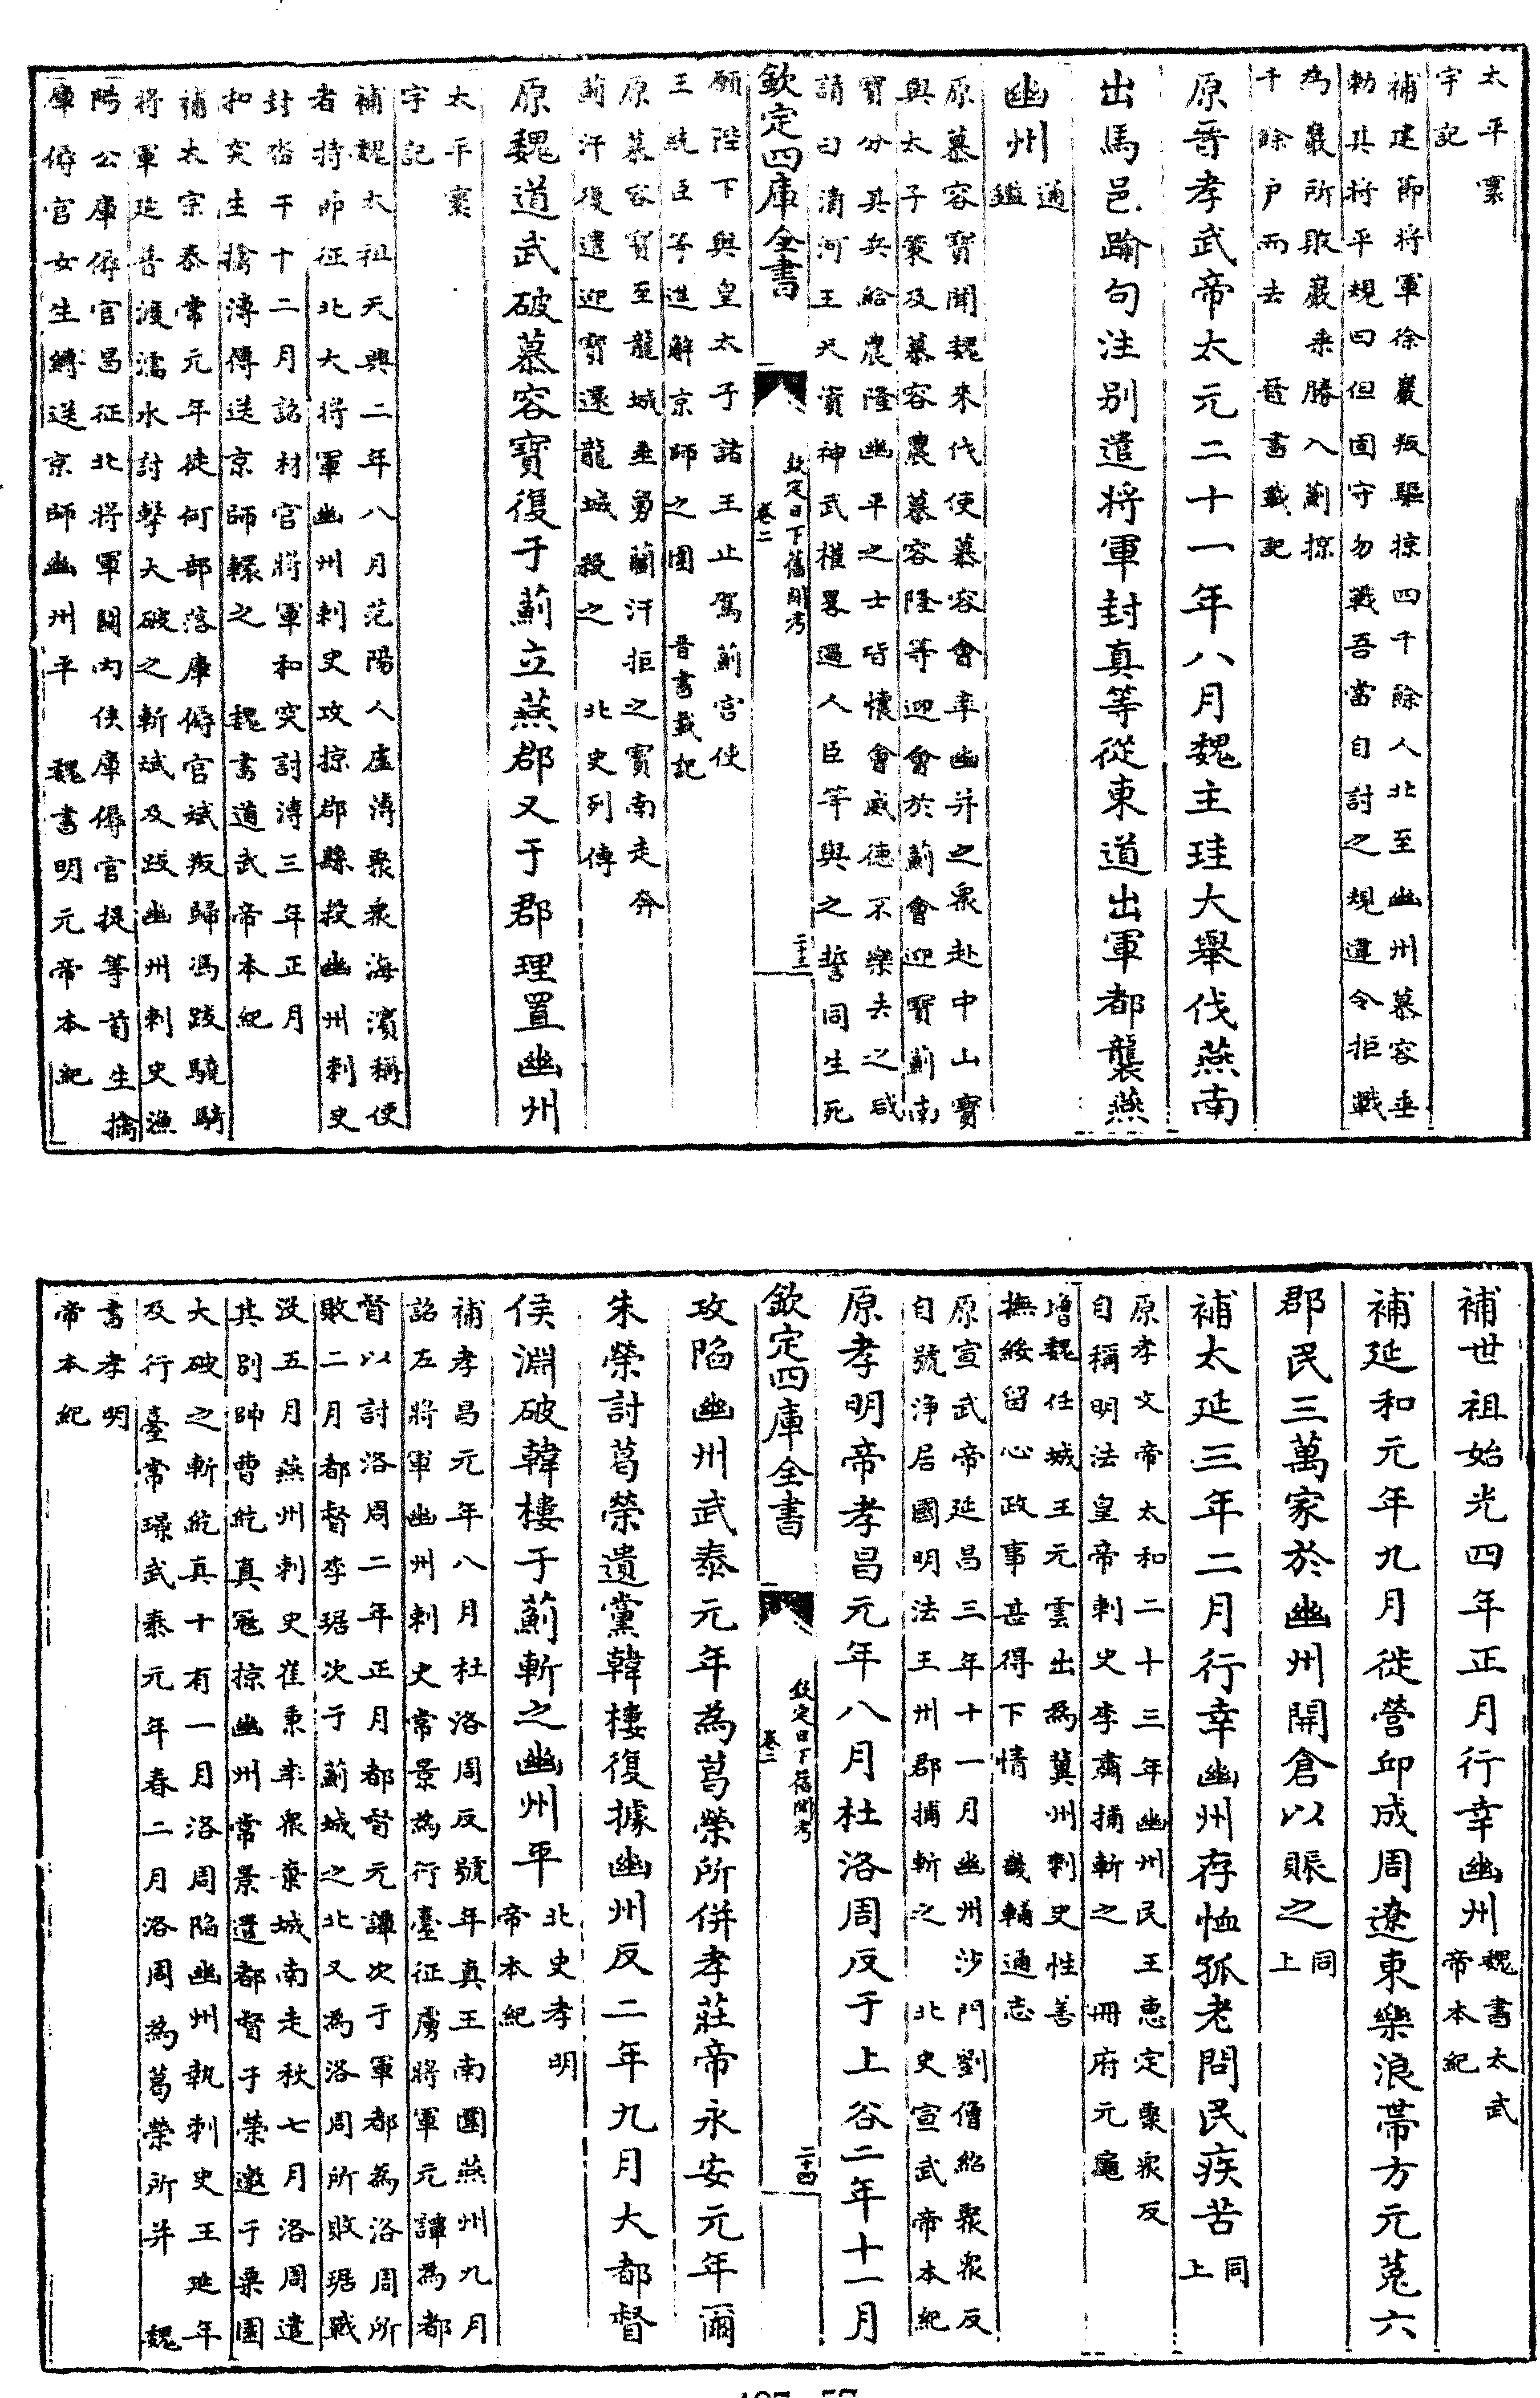 太平寰
宇記
補建節将軍徐巖叛驅掠四千餘人北至幽州慕容垂
勅其将平規曰但固守勿戰吾當自討之規違令拒戰
為巖所敗巖乘勝入薊掠
千餘户而去　晉書載記
原晉孝武帝太元二十一年八月魏主珪大舉伐燕南
出馬邑踰句注别遣将軍封真等從東道出軍都襲燕
幽州通
鑑
原慕容寶聞魏來伐使慕容會率幽并之衆赴中山寶
與太子策及慕容農慕容隆等迎會於薊會迎寶薊南
寶分其兵給農隆幽平之士皆懷會威德不樂去之咸
請曰清河王天資神武權畧過人臣等與之誓同生死
欽定四庫全書
欽定日下舊聞考
卷二
二十三
願陛下與皇太子諸王止駕薊宫使
王統臣等進解京師之圍　晉書載記
原慕容寶至龍城垂舅蘭汗拒之寶南走奔
薊汗復遣迎寶還龍城殺之　北史列傳
原魏道武破慕容寶復于薊立燕郡又于郡理置幽州
太平寰
宇記
補魏太祖天興二年八月范陽人盧溥聚衆海濱稱使
者持節征北大将軍幽州刺史攻掠郡縣殺幽州刺史
封沓干十二月詔材官將軍和突討溥三年正月
和突生擒溥傳送京師轘之　魏書道武帝本紀
補太宗泰常元年徒何部落庫傉官斌叛歸馮跋驍騎
將軍延普渡濡水討擊大破之斬斌及跋幽州刺史漁
陽公庫傉官昌征北將軍關内侯庫傉官提等首生擒
庫傉官女生縛送京師幽州平　魏書明元帝本紀
補世祖始光四年正月行幸幽州魏書太武
帝本紀
補延和元年九月徙營邱成周遼東樂浪帶方元菟六
郡民三萬家於幽州開倉以賑之同
上
補太延三年二月行幸幽州存恤孤老問民疾苦同
上
原孝文帝太和二十三年幽州民王惠定聚衆反
自稱明法皇帝刺史李肅捕斬之　冊府元龜
增魏任城王元雲出為冀州刺史性善
撫綏留心政事甚得下情　畿輔通志
原宣武帝延昌三年十一月幽州沙門劉僧紹聚衆反
自號淨居國明法王州郡捕斬之　北史宣武帝本紀
原孝明帝孝昌元年八月杜洛周反于上谷二年十一月
欽定四庫全書
欽定日下舊聞考
卷二
二十四
攻陷幽州武泰元年為葛榮所併孝莊帝永安元年爾
朱榮討葛榮遺黨韓樓復據幽州反二年九月大都督
侯淵破韓樓于薊斬之幽州平北史孝明
帝本紀
補孝昌元年八月杜洛周反號年真王南圍燕州九月
詔左將軍幽州刺史常景為行臺征虜將軍元譚為都
督以討洛周二年正月都督元譚次于軍都為洛周所
敗二月都督李琚次于薊城之北又為洛周所敗琚戰
沒五月燕州刺史崔秉率衆棄城南走秋七月洛周遣
其别帥曹紇真寇掠幽州常景遣都督于榮邀于粟園
大破之斬紇真十有一月洛周陷幽州執刺史王延年
及行臺常璟武泰元年春二月洛周為葛榮所并　魏
書孝明
帝本紀